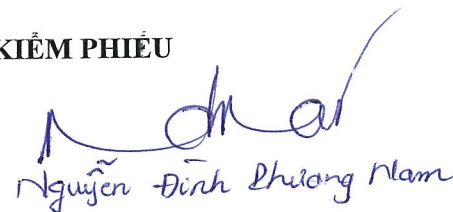 KIỂM PHIẾU
Nguyễn Đình Phương Nam